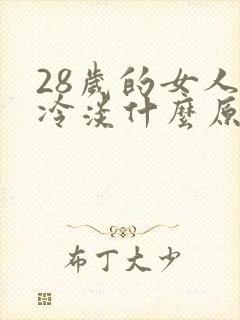 28歲的女人
冷淡什麼原
布丁大少